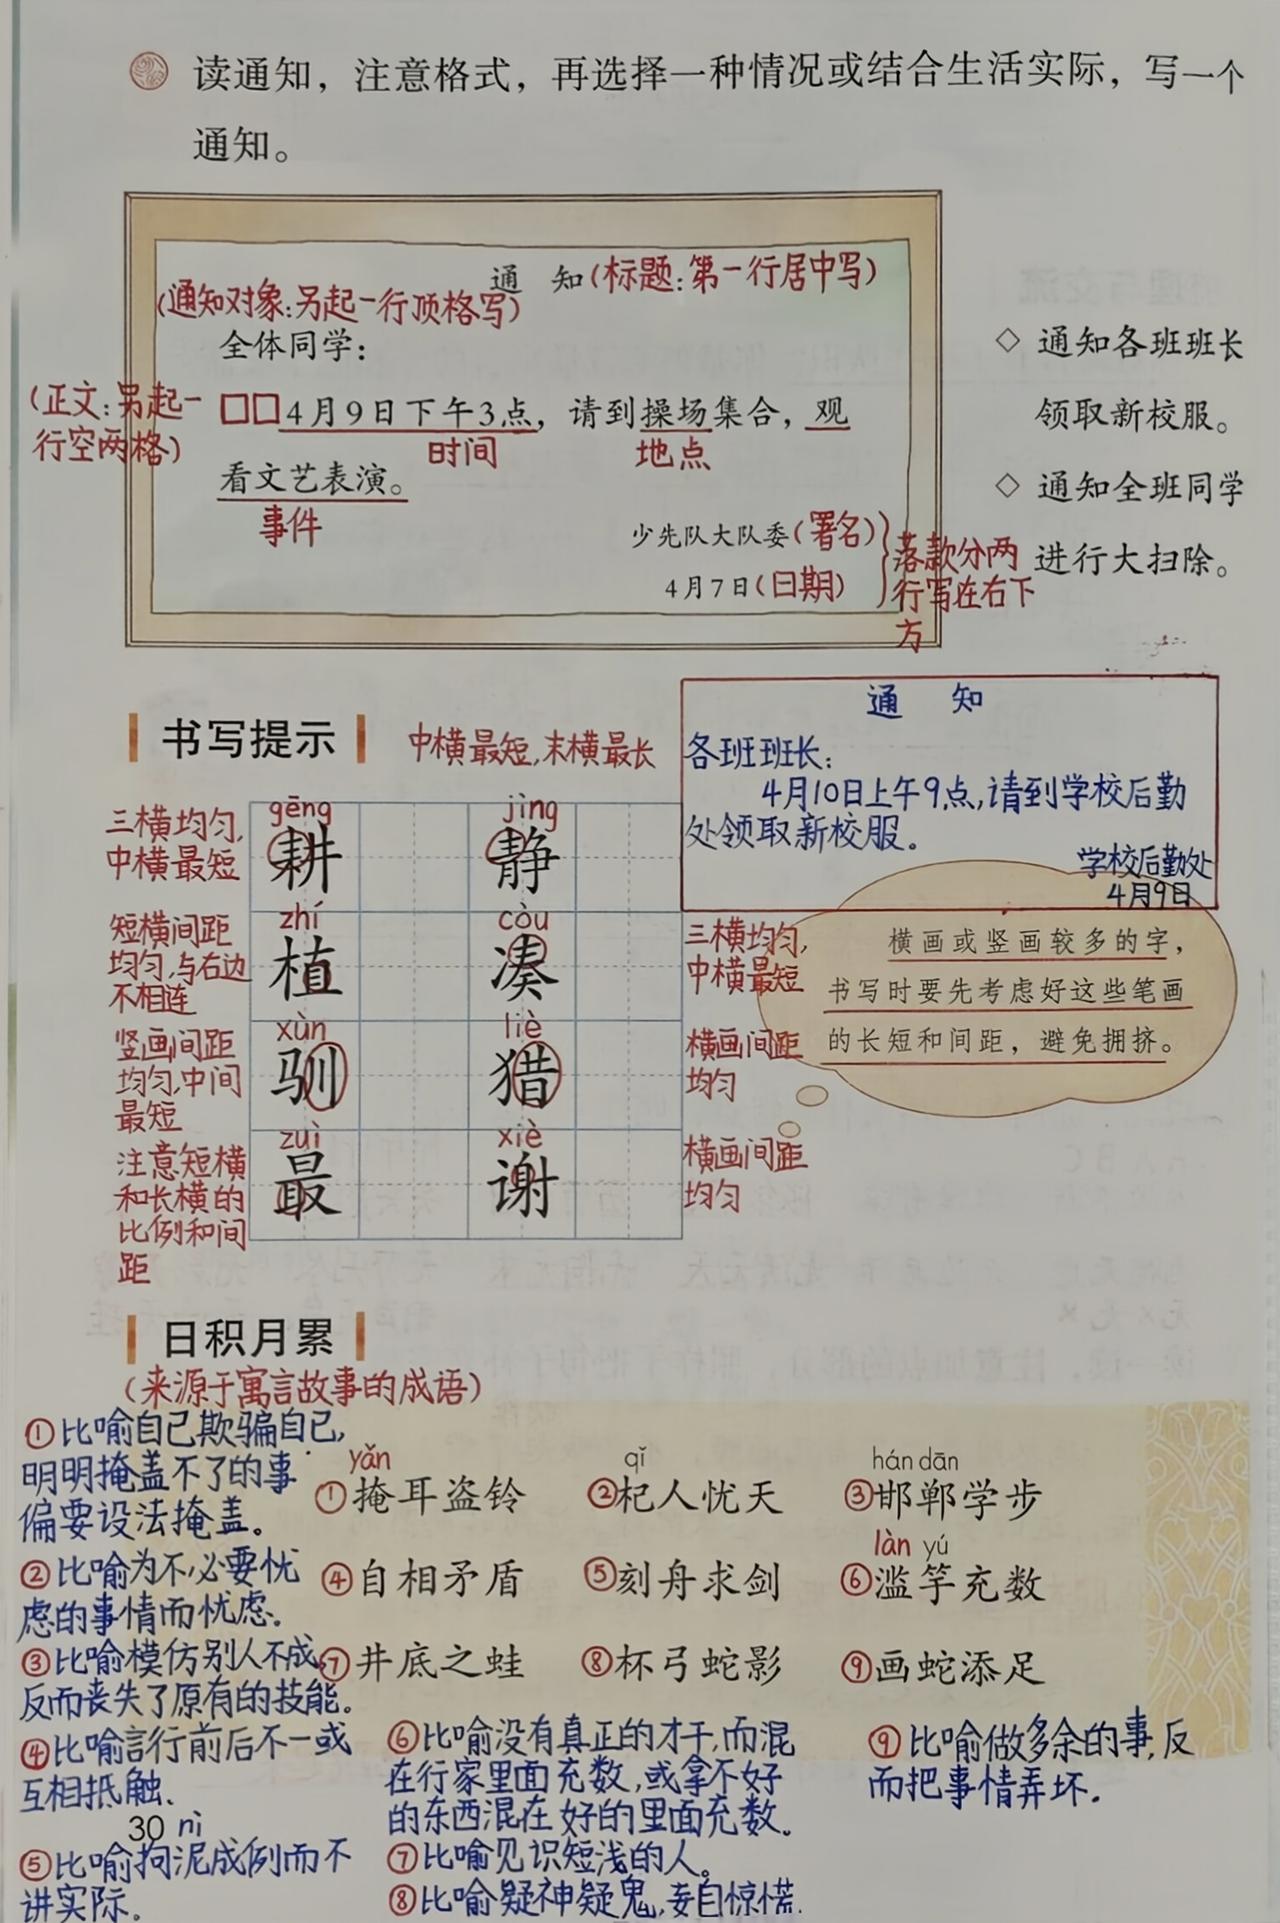 读通知，注意格式，再选择一种情况或结合生活实际，写一个
通知。
通 知(标题:第一行居中写)
(通知对象:另起一行顶格写)
全体同学：
(正文:另起一
行空两格)
□□4月9日下午3点，请到操场集合，观
时间 地点
看文艺表演。
事件
少先队大队委(署名)
4月7日(日期)
落款分两
行写在右下
方
◇ 通知各班班长
领取新校服。
◇ 通知全班同学
进行大扫除。
书写提示
中横最短,末横最长
通 知
各班班长:
4月10日上午9点,请到学校后勤
处领取新校服。
学校后勤处
4月9日
三横均匀,
中横最短
gēng jìng
耕 静
短横间距
均匀,与右边
不相连
zhí còu
植 凑
三横均匀,
中横最短
竖画间距
均匀,中间
最短
xùn liè
驯 猎
横画间距
均匀
注意短横
和长横的
比例和间
距
zuì xiè
最 谢
横画间距
均匀
横画或竖画较多的字，
书写时要先考虑好这些笔画
的长短和间距，避免拥挤。
日积月累
(来源于寓言故事的成语)
yǎn qǐ hán dān
①掩耳盗铃 ②杞人忧天 ③邯郸学步
làn yú
④自相矛盾 ⑤刻舟求剑 ⑥滥竽充数
⑦井底之蛙 ⑧杯弓蛇影 ⑨画蛇添足
①比喻自己欺骗自己,
明明掩盖不了的事
偏要设法掩盖。
②比喻为不必要忧
虑的事情而忧虑。
③比喻模仿别人不成,
反而丧失了原有的技能。
④比喻言行前后不一或
互相抵触.
30
nì
⑤比喻拘泥成例而不
讲实际.
⑥比喻没有真正的才干,而混
在行家里面充数,或拿不好
的东西混在好的里面充数。
⑦比喻见识短浅的人。
⑧比喻疑神疑鬼,妄自惊慌.
⑨比喻做多余的事,反
而把事情弄坏.